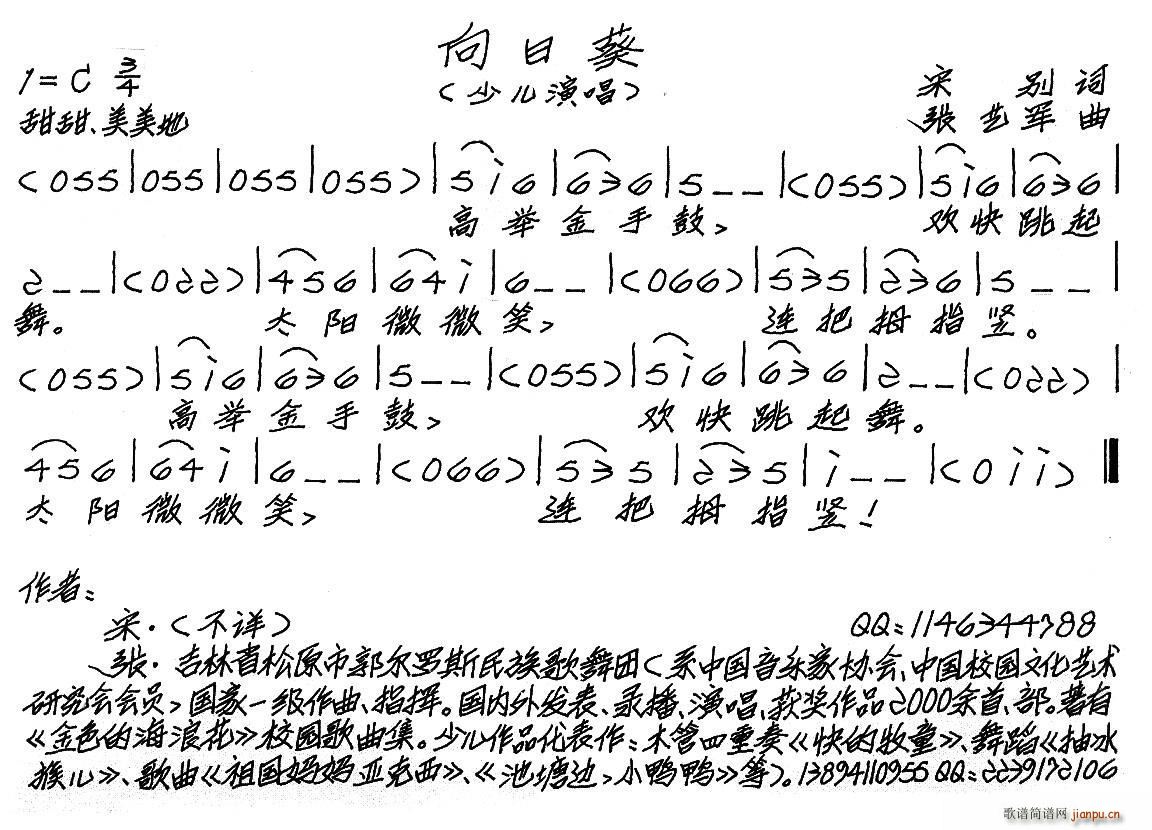 向日葵
1=C 3/4
（少儿演唱）
宋 别 词
甜甜、美美地
张艺军 曲
(055|055|055|055)|5 i 6|6 3 6|5 _ _|(055)|5 i 6|6 3 6|
高举金手鼓， 欢快跳起
2 _ _|(022)|4 5 6|6 4 i|6 _ _|(066)|5 3 5|2 3 6|5 _ _|
舞。 太阳微微笑， 连把拇指竖。
(055)|5 i 6|6 3 6|5 _ _|(055)|5 i 6|6 3 6|2 _ _|(022)|
高举金手鼓， 欢快跳起舞。
4 5 6|6 4 i|6 _ _|(066)|5 3 5|2 3 5|i _ _|(0 i i)‖
太阳微微笑， 连把拇指竖！
作者：
宋·（不详） QQ：1146344788
张·吉林省松原市郭尔罗斯民族歌舞团（系中国音乐家协会、中国校园文化艺术
研究会会员，国家一级作曲、指挥。国内外发表、录播、演唱、获奖作品2000余首、部。著有
《金色的海浪花》校园歌曲集。少儿作品代表作：木管四重奏《快的牧童》、舞蹈《抽冰
猴儿》、歌曲《祖国妈妈亚克西》、《池塘边，小鸭鸭》等）。13894110955 QQ：2239172106
歌谱简谱网
jianpu.cn